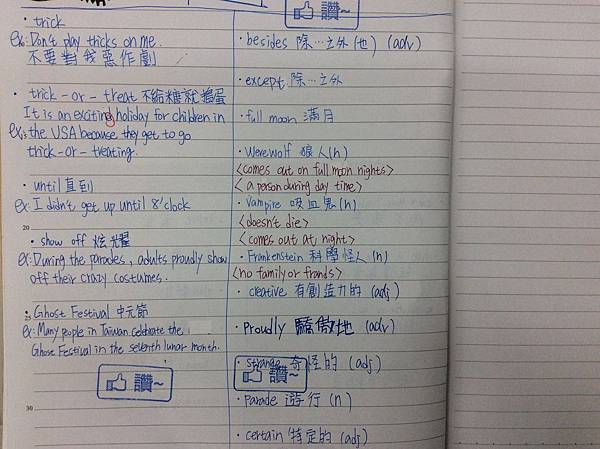 讚~
· trick
ex: Don't play thicks on me.
不要對我惡作劇
· trick-or-treat 不給糖就搗蛋
It is an exciting holiday for children in
ex: the USA because they get to go
trick-or-treating.
· until 直到
ex: I didn't get up until 8'clock
20
· show off 炫耀
ex: During the parades, adults proudly show
off their crazy costumes.
· Ghost Festival 中元節
25
ex: Many people in Taiwan celebrate the
Ghost Festival in the seventh lunar month.
讚~
30
· besides 除…之外(也) (adv)
· except 除…之外
· full moon 滿月
· Werewolf 狼人(n)
<comes out on full moon nights>
<a person during day time>
· Vampire 吸血鬼(n)
<doesn't die>
<comes out at night>
· Frankenstein 科學怪人(n)
<no family or frands>
· creative 有創造力的 (adj)
· Proudly 驕傲地 (adv)
· strange 奇怪的 (adj)
讚~
· Parade 遊行 (n)
· certain 特定的 (adj)